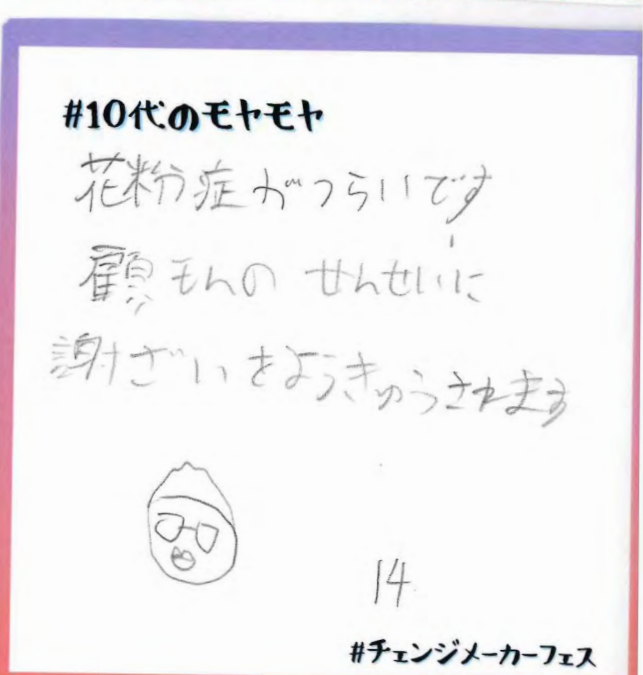 #10代のモヤモヤ
花粉症がつらいです
顧もんのせんせいに
謝ざいをようきゅうされます
14
#チェンジメーカーフェス